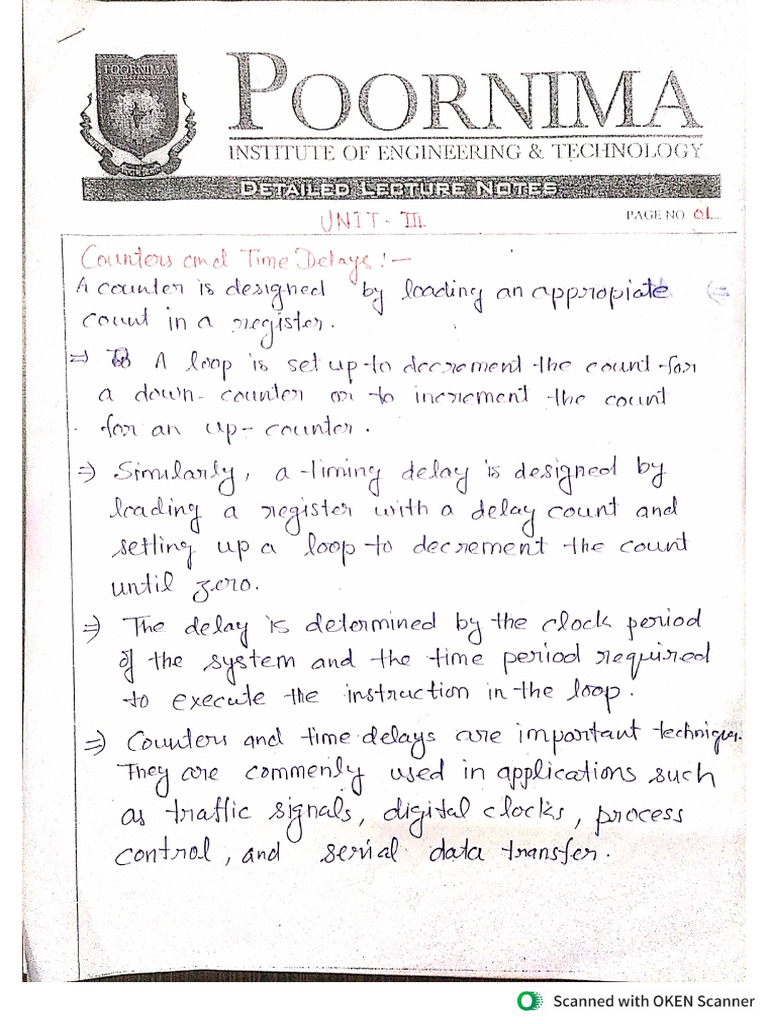 POORNIMA
POORNIMA
INSTITUTE OF ENGINEERING & TECHNOLOGY
DETAILED LECTURE NOTES
UNIT - III
PAGE NO. 01
Counters and Time Delays :-
A counter is designed by loading an appropiate
count in a register.
⇒ A loop is set up to decrement the count for
a down-counter or to increment the count
for an up-counter.
⇒ Similarly, a timing delay is designed by
loading a register with a delay count and
setting up a loop to decrement the count
until zero.
⇒ The delay is determined by the clock period
of the system and the time period required
to execute the instruction in the loop.
⇒ Counters and time delays are important techniques.
They are commenly used in applications such
as traffic signals, digital clocks, process
control, and serial data transfer.
Scanned with OKEN Scanner